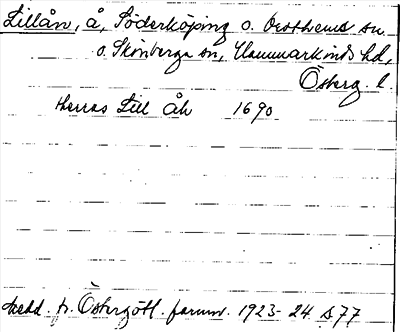 Lillån, å, Söderköping o. Drothems sn
o. Skönberga sn, Hammarkinds hd,
Österg. l.
Herras Lill Åh 1690
Medd. fr. Östergötl. fornm. 1923-24 s 77